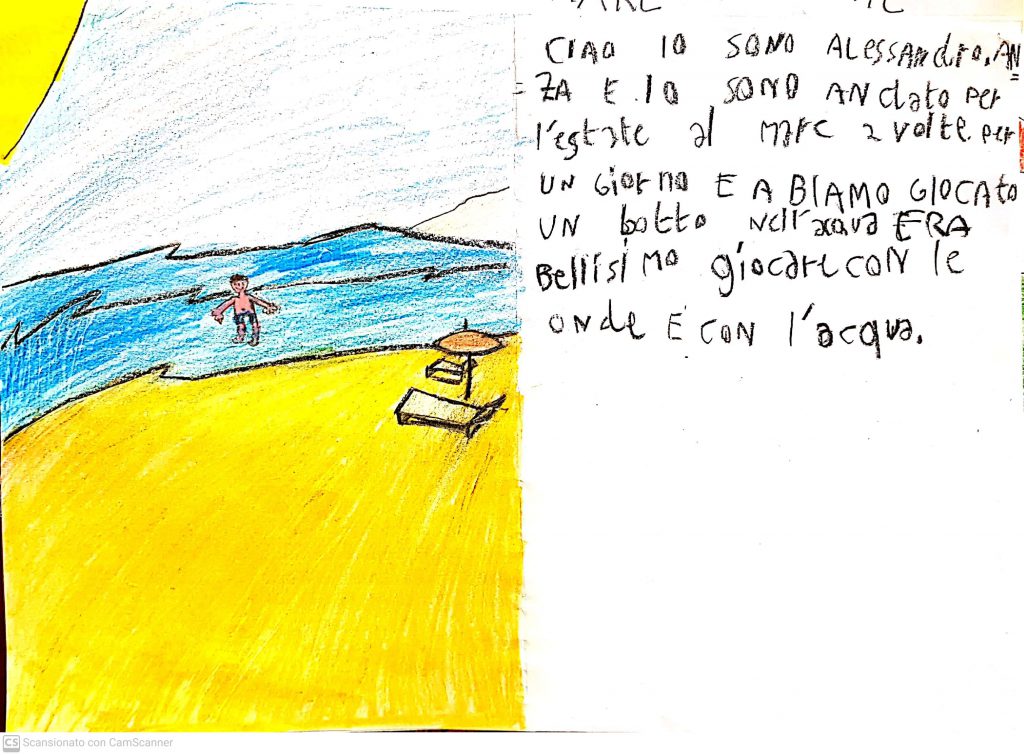 CIAO IO SONO ALESSANdro.AN
=ZA E IO SONO ANdato per
l'estate al mare 2 volte per
UN Giorno E ABIAMO GIOCATO
UN botto nell'acqua ERA
Bellisimo giocare CON le
onde E CON l'acqua.
CS Scansionato con CamScanner